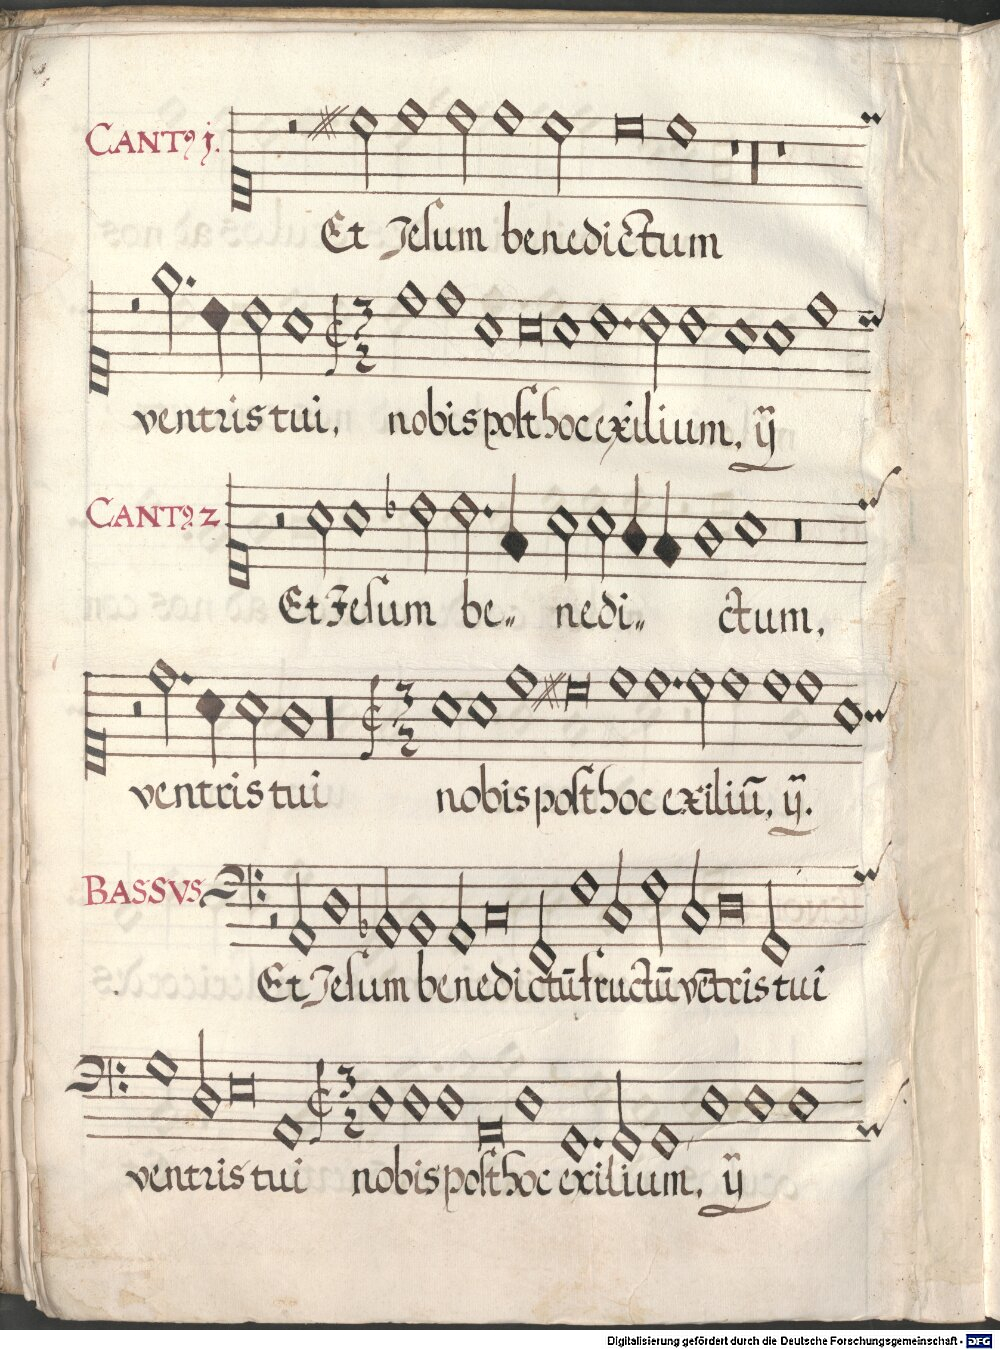 CANTꝰ j.
Et Jesum benedictum
3
2
ventris tui, nobis post hoc exilium, ij
CANTꝰ 2
Et Jesum be„ nedi„ ctum,
3
2
ventris tui nobis post hoc exiliū, ij.
BASSVS
Et Jesum benedictū fructū vētris tui
3
2
ventris tui nobis post hoc exilium, ij
Digitalisierung gefördert durch die Deutsche Forschungsgemeinschaft - DFG